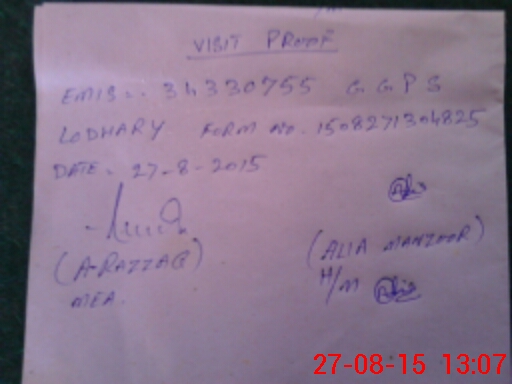 VISIT PROOF
EMIS:- 34330755 G.G.P S
LODHARY FORM NO. 1508271304825
DATE. 27-8-2015
(A-RAZZAQ)
(ALIA MANZOOR)
MEA.
H/M
27-08-15 13:07